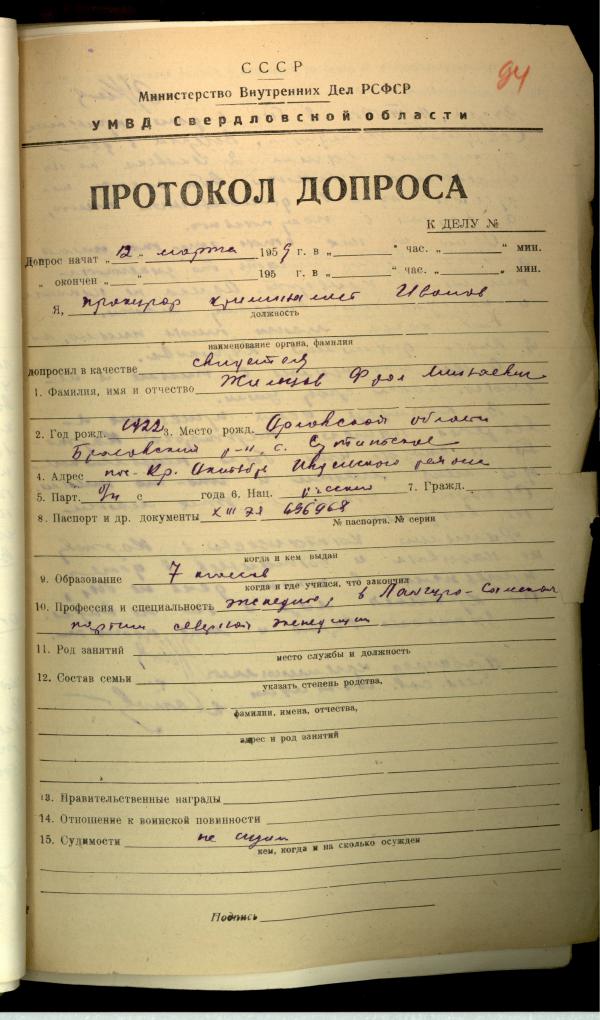 94
СССР
Министерство Внутренних Дел РСФСР
УМВД Свердловской области
ПРОТОКОЛ ДОПРОСА
К ДЕЛУ №
Допрос начат „12„ марта 1959 г. в „ “ час. „ “ мин.
„ окончен „ “ 195 г. в „ “ час. „ „ мин.
Я, прокурор криминалист Иванов
должность
наименование органа, фамилия
допросил в качестве свидетеля
1. Фамилия, имя и отчество Жильцов Фрол
2. Год рожд. 1922 3. Место рожд. Орловской области
р-н, с.
4. Адрес пос. Кр. Октябрь Ивдельского района
5. Парт. б/п с года 6. Нац. русский 7. Гражд.
8. Паспорт и др. документы XIII 696968
№ паспорта. № серии
когда и кем выдан
9. Образование 7 классов
когда и где учился, что закончил
10. Профессия и специальность в
партии северной экспедиции
11. Род занятий
место службы и должность
12. Состав семьи
указать степень родства,
фамилии, имена, отчества,
адрес и род занятий
13. Правительственные награды
14. Отношение к воинской повинности
15. Судимости не судим
кем, когда и на сколько осужден
Подпись